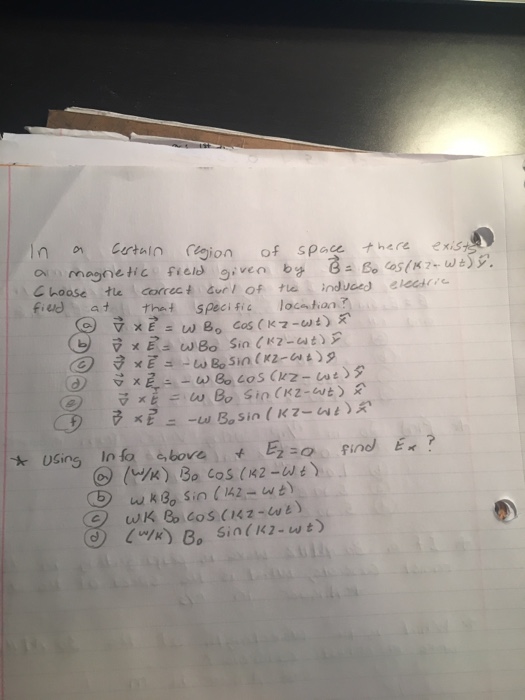 In a certain region of space there exists
a magnetic field given by B⃗ = B₀ cos(kz-ωt) ŷ.
Choose the correct curl of the induced electric
field at that specific location?
(a) ∇⃗ × E⃗ = ω B₀ cos(kz-ωt) x̂
(b) ∇⃗ × E⃗ = ω B₀ sin(kz-ωt) ŷ
(c) ∇⃗ × E⃗ = -ω B₀ sin(kz-ωt) ŷ
(d) ∇⃗ × E⃗ = -ω B₀ cos(kz-ωt) ŷ
(e) ∇⃗ × E⃗ = ω B₀ sin(kz-ωt) x̂
(f) ∇⃗ × E⃗ = -ω B₀ sin(kz-ωt) x̂
* Using Info above + Ez=0 find Ex?
(a) (ω/k) B₀ cos(kz-ωt)
(b) ωk B₀ sin(kz-ωt)
(c) ωk B₀ cos(kz-ωt)
(d) (ω/k) B₀ sin(kz-ωt)